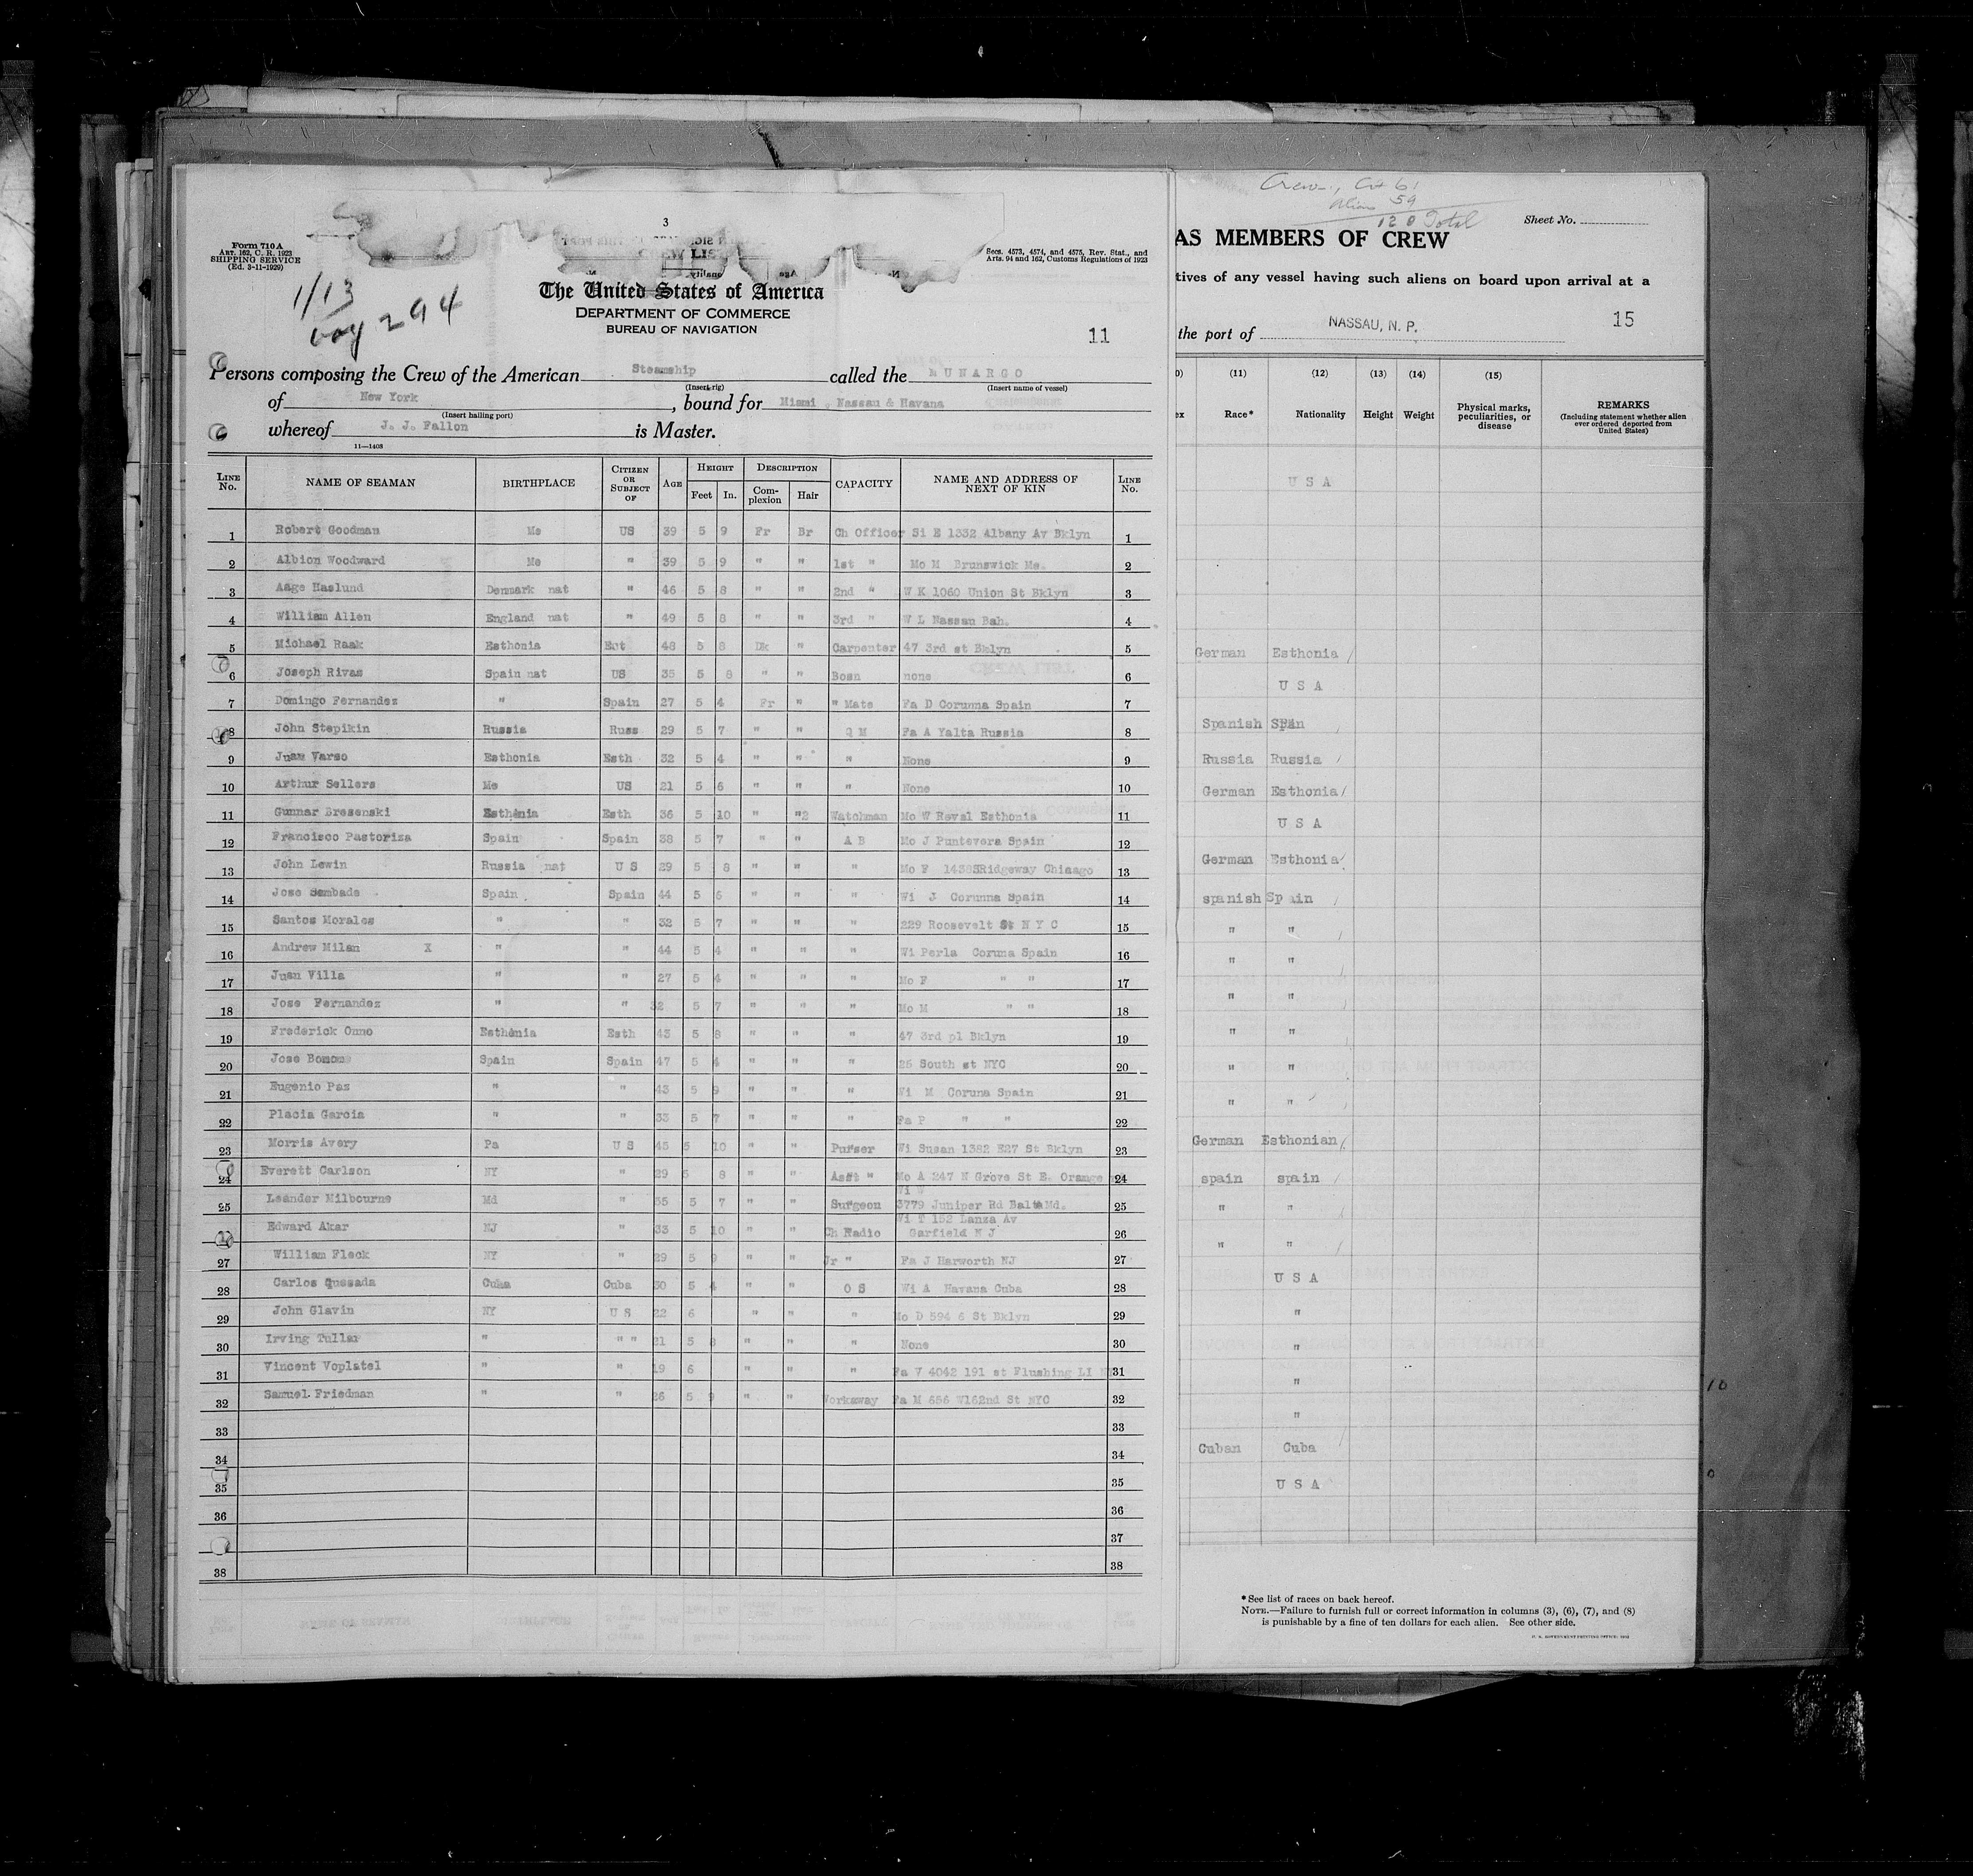 3
Form 710 A
ART. 162, C. R. 1923
SHIPPING SERVICE
(Ed. 3-11-1929)
Secs. 4573, 4574, and 4575, Rev. Stat., and
Arts. 94 and 162, Customs Regulations of 1923
1/13
voy 294
The United States of America
DEPARTMENT OF COMMERCE
BUREAU OF NAVIGATION
11
Persons composing the Crew of the American Steamship called the MUNARGO
(Insert rig) (Insert name of vessel)
of New York, bound for Miami, Nassau & Havana
(Insert hailing port)
whereof J. J. Fallon is Master.
11—1408
LINE No. NAME OF SEAMAN BIRTHPLACE CITIZEN OR SUBJECT OF AGE HEIGHT Feet In. DESCRIPTION Complexion Hair CAPACITY NAME AND ADDRESS OF NEXT OF KIN LINE No.
1 Robert Goodman Me US 39 5 9 Fr Br Ch Officer Si E 1332 Albany Av Bklyn 1
2 Albion Woodward Me " 39 5 9 " " 1st " Mo M Brunswick Me. 2
3 Aage Haslund Denmark nat " 46 5 8 " " 2nd " W K 1060 Union St Bklyn 3
4 William Allen England nat " 49 5 8 " " 3rd " W L Nassau Bah. 4
5 Michael Raak Esthonia Est 48 5 8 Dk " Carpenter 47 3rd st Bklyn 5
6 Joseph Rivas Spain nat US 35 5 8 " " Bosn none 6
7 Domingo Fernandez " Spain 27 5 4 Fr " " Mate Fa D Corunna Spain 7
8 John Stepikin Russia Russ 29 5 7 " " Q M Fa A Yalta Russia 8
9 Juan Varso Esthonia Esth 32 5 4 " " " None 9
10 Arthur Sellers Me US 21 5 6 " " " None 10
11 Gunnar Bresenski Esthenia Esth 36 5 10 " "2 Watchman Mo W Reval Esthonia 11
12 Francisco Pastoriza Spain Spain 38 5 7 " " A B Mo J Puntevera Spain 12
13 John Lewin Russia nat U S 29 5 8 " " " Mo F Ridgeway Chiaago 13
14 Jose Sembade Spain Spain 44 5 6 " " " Wi J Corunna Spain 14
15 Santos Morales " " 32 5 7 " " " 229 Roosevelt St N Y C 15
16 Andrew Milan X " " 44 5 4 " " " Wi Perla Coruna Spain 16
17 Juan Villa " " 27 5 4 " " " Mo F " " 17
18 Jose Fernandez " " 32 5 7 " " " Mo M " " 18
19 Frederick Onno Esthenia Esth 43 5 8 " " " 47 3rd pl Bklyn 19
20 Jose Bonome Spain Spain 47 5 4 " " " 25 South st NYC 20
21 Eugenio Paz " " 43 5 9 " " " Wi M Coruna Spain 21
22 Placia Garcia " " 33 5 7 " " " Fa P " " 22
23 Morris Avery Pa U S 45 5 10 " " Purser Wi Susan 1382 E27 St Bklyn 23
24 Everett Carlson NY " 29 5 8 " " Asst " Mo A 247 N Grove St E. Orange 24
25 Leander Milbourne Md " 35 5 7 " " Surgeon Wi W 3779 Juniper Rd Balto Md. 25
26 Edward Akar NJ " 33 5 10 " " Ch Radio Wi T 152 Lanza Av Garfield N J 26
27 William Fleck NY " 29 5 9 " " Jr " Fa J Harworth NJ 27
28 Carlos Quesada Cuba Cuba 30 5 4 " " O S Wi A Havana Cuba 28
29 John Glavin NY U S 22 6 " " " Mo D 594 6 St Bklyn 29
30 Irving Tullar " " " 21 5 8 " " " None 30
31 Vincent Voplatel " " 19 6 " " " Fa V 4042 191 st Flushing LI 31
32 Samuel Friedman " " 26 5 9 " " Workaway Fa M 656 W162nd St NYC 32
33 33
34 34
35 35
36 36
37 37
38 38
Crew, Cit 61
Alien 59
120 Total
Sheet No.
AS MEMBERS OF CREW
tives of any vessel having such aliens on board upon arrival at a
the port of NASSAU, N. P. 15
(11) (12) (13) (14) (15)
ex Race* Nationality Height Weight Physical marks, peculiarities, or disease REMARKS
(Including statement whether alien ever ordered deported from United States)
U S A
German Esthonia
U S A
Spanish Spain
Russia Russia
German Esthonia
U S A
German Esthonia
spanish Spain
" "
" "
" "
" "
" "
" "
German Esthonian
spain spain
" "
" "
U S A
"
"
"
"
Cuban Cuba
U S A
10
0
*See list of races on back hereof.
NOTE.—Failure to furnish full or correct information in columns (3), (6), (7), and (8)
is punishable by a fine of ten dollars for each alien. See other side.